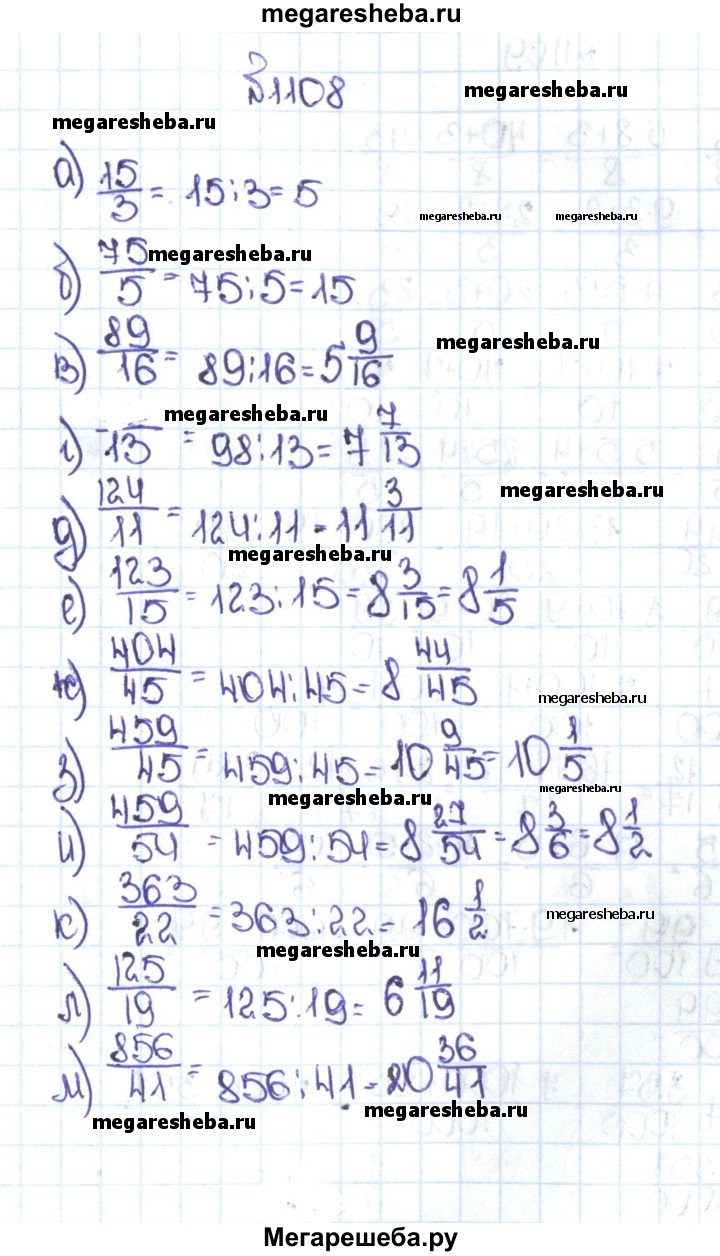 megaresheba.ru
№1108
megaresheba.ru
megaresheba.ru
а) 15/3 = 15:3=5
megaresheba.ru megaresheba.ru
megaresheba.ru
б) 75/5 = 75:5=15
megaresheba.ru
в) 89/16 = 89:16=5 9/16
megaresheba.ru
г) /13 = 98:13=7 7/13
megaresheba.ru
д) 124/11 = 124:11=11 3/11
megaresheba.ru
е) 123/15 = 123:15=8 3/15=8 1/5
ж) 404/45 = 404:45=8 44/45
megaresheba.ru
з) 459/45 = 459:45=10 9/45=10 1/5
megaresheba.ru
megaresheba.ru
и) 459/54 = 459:54=8 27/54=8 3/6=8 1/2
к) 363/22 = 363:22=16 1/2
megaresheba.ru
megaresheba.ru
л) 125/19 = 125:19=6 11/19
м) 856/41 = 856:41=20 36/41
megaresheba.ru
megaresheba.ru
Мегарешеба.ру